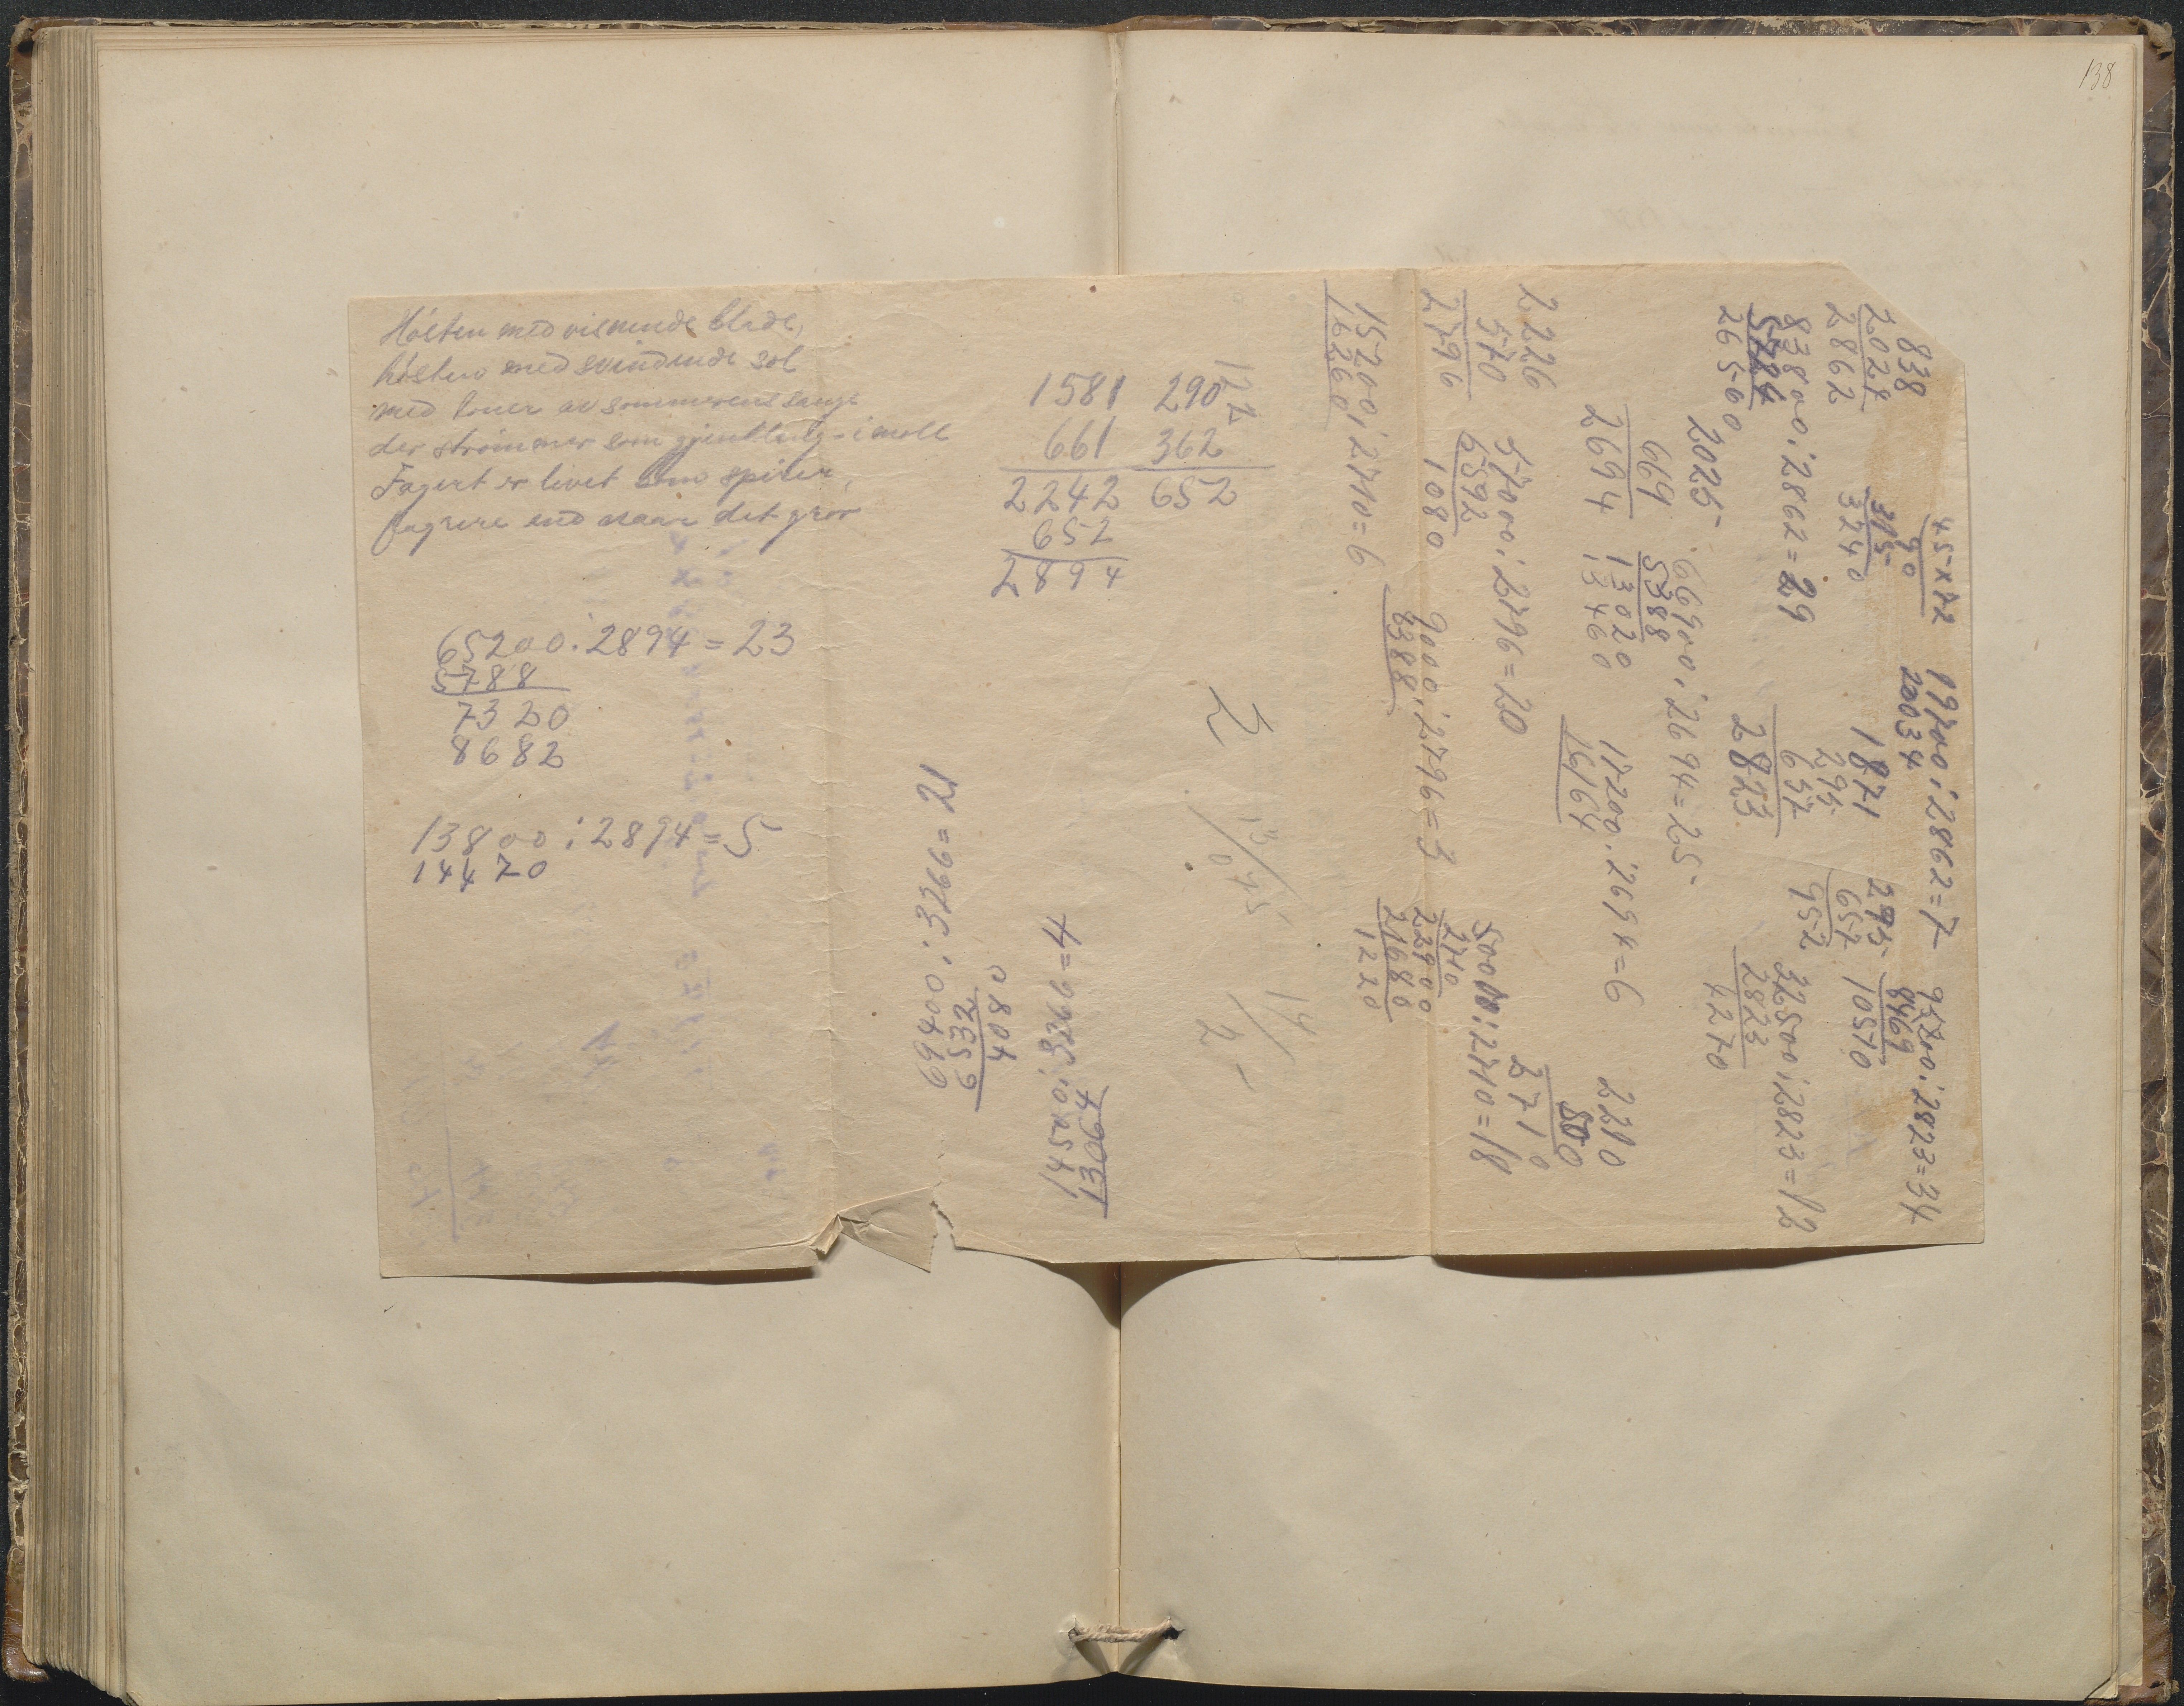 138
Høsten med visnende blade,
høsten med svindende sol
med toner av sommerens sange
der strømmer som gjenklang i moll
Fagert er livet som spirer,
fagrere end naar det gror
65200:2894=23
5788
7320
8682
13800:2894=5
14470
1581 290
661 362
2242 652
652
2894
122
69400:3266=21
6532
4080
14500:3266=4
13064
2
14/2
838
2024
2862
45x72
90
315
3240
19700:2862=7
20034
83800:2862=29
5724
26560
1871
295
657
2823
295
657
952
95700:2823=34
8469
10570
32500:2823=12
2823
4270
2025
669
2694
66900:2694=25
5388
13020
13460
17200:2694=6
16164
2226
570
2796
57000:2796=20
6592
1080
9000:2796=3
8388
2210
500
2710
50000:2710=18
2710
22900
21680
1220
15200:2710=6
16260